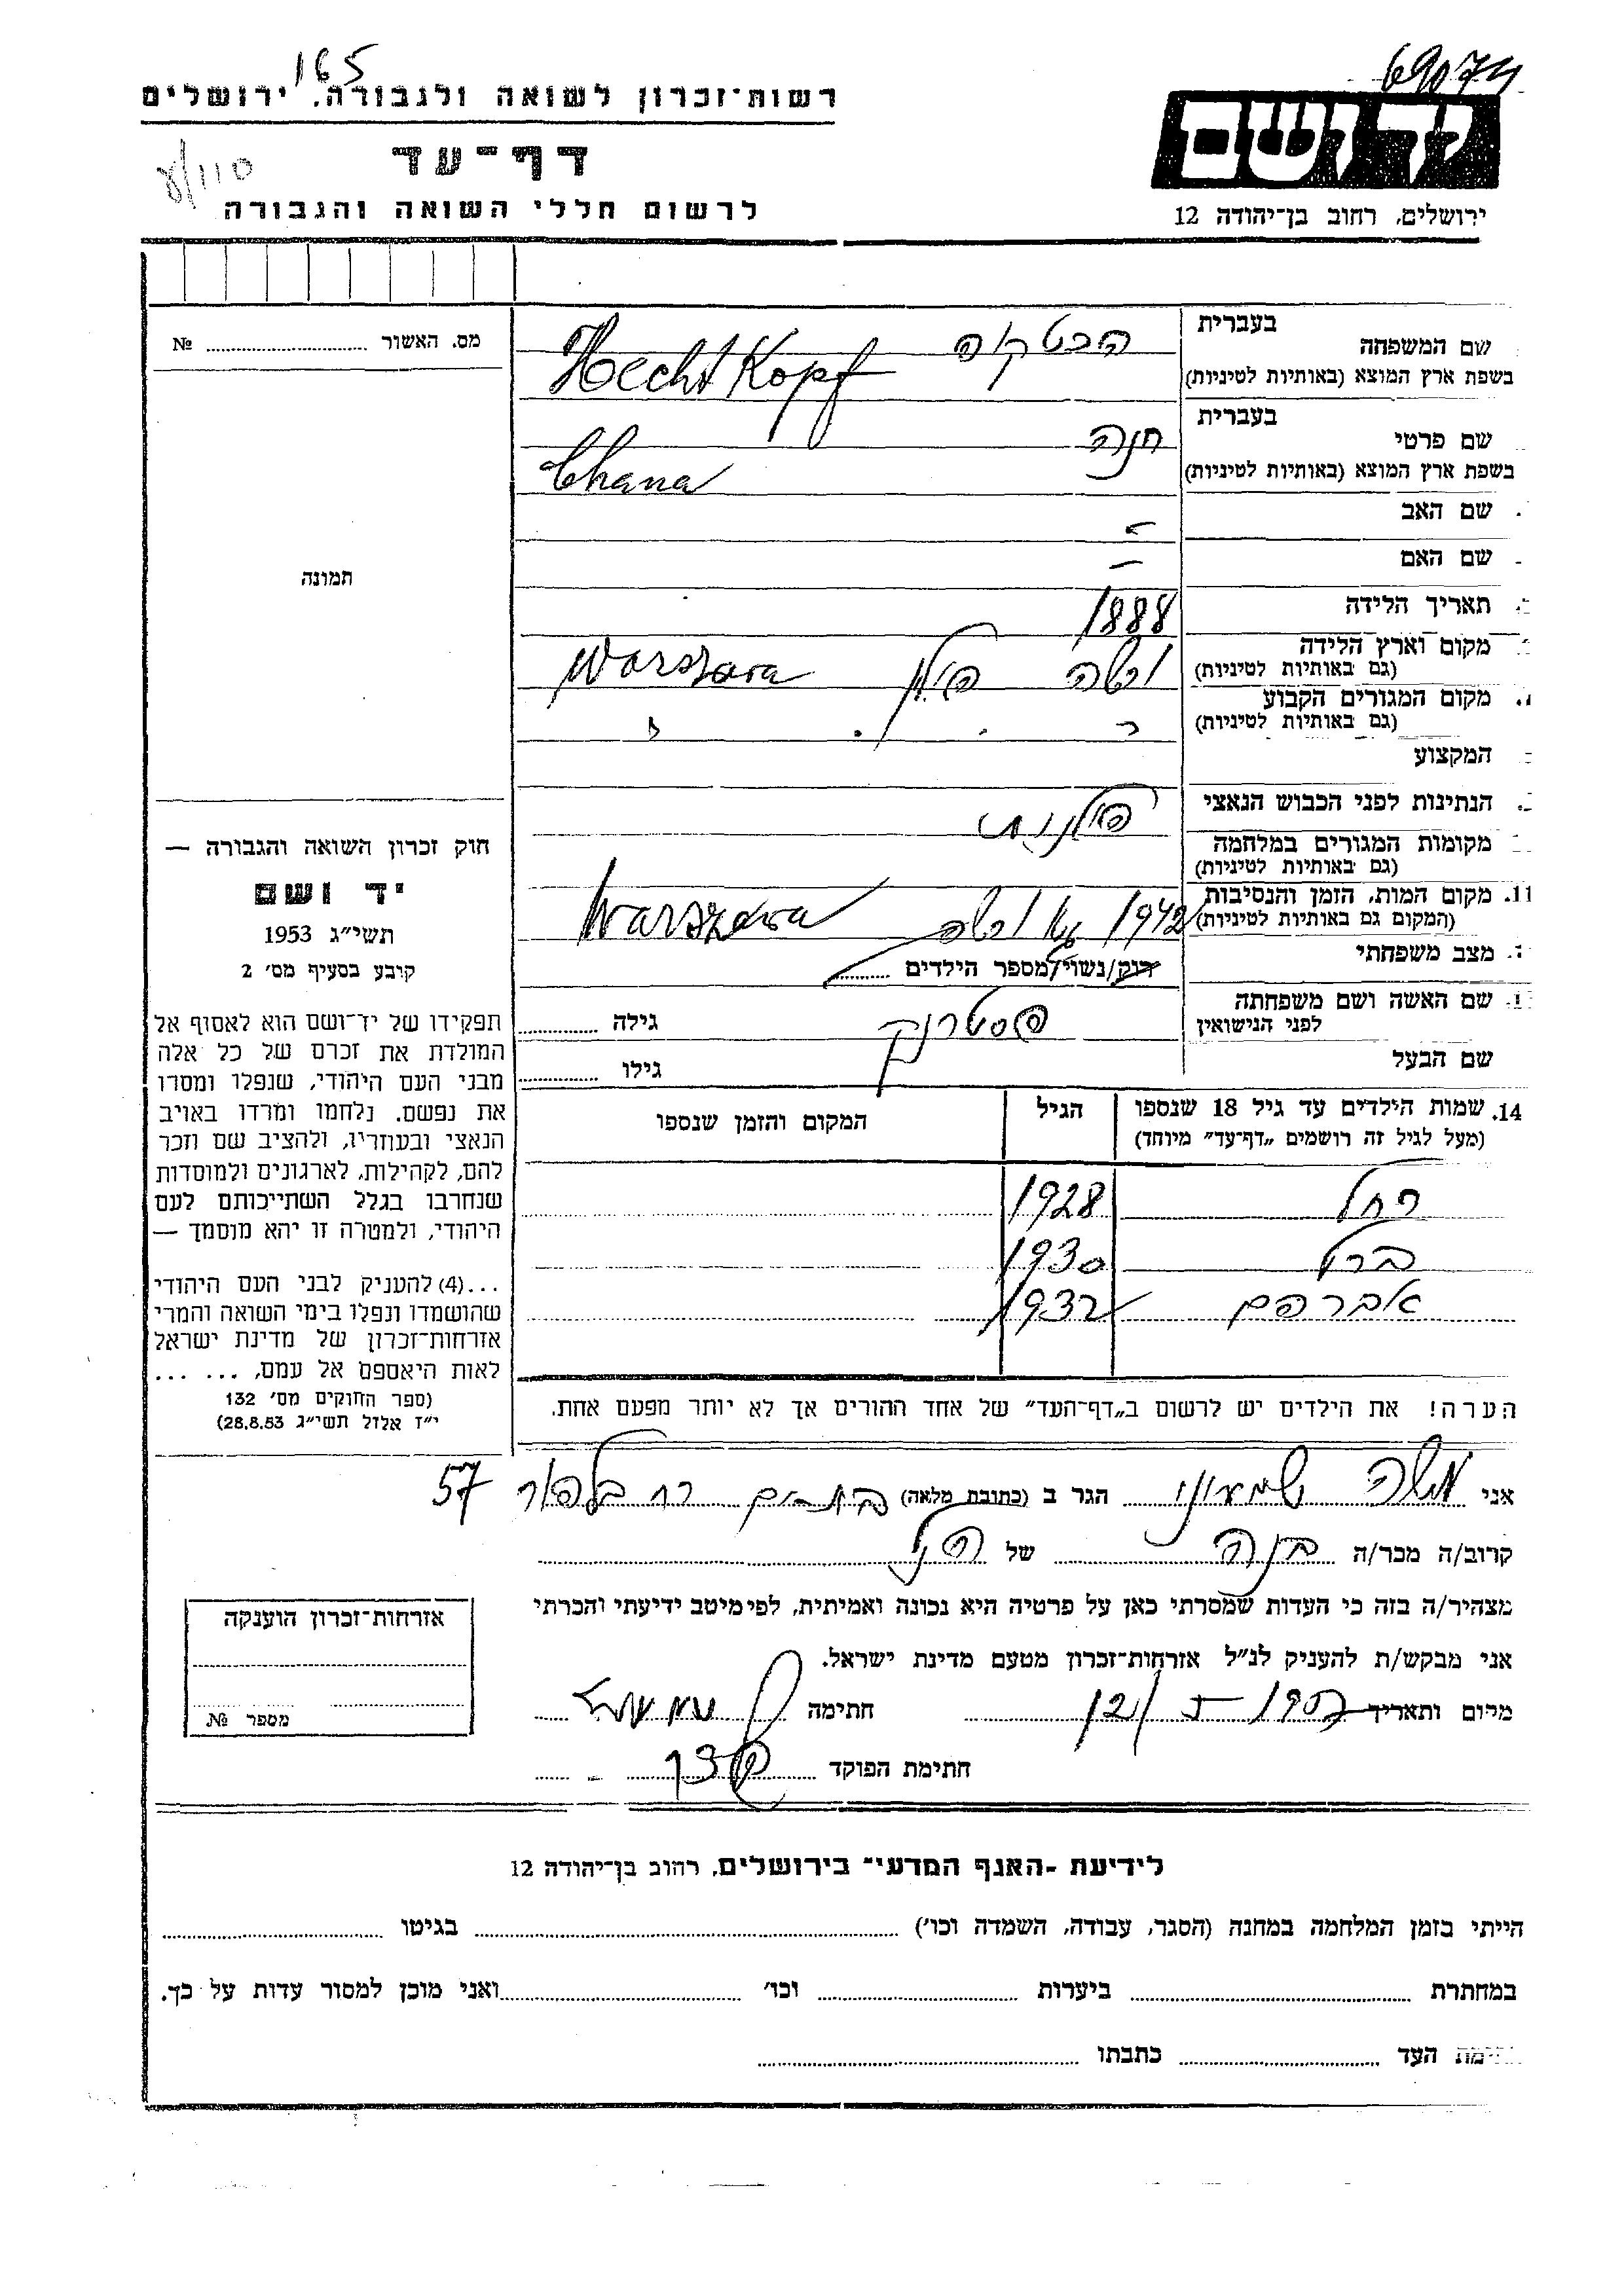 165
69074
רשות־זכרון לשואה ולגבורה, ירושלים
יד ושם
דף־עד
110/
לרשום חללי השואה והגבורה
ירושלים, רחוב בן־יהודה 12
שם המשפחה בעברית
בשפת ארץ המוצא (באותיות לטיניות) Hechtkopf
שם פרטי בעברית חנה
בשפת ארץ המוצא (באותיות לטיניות) Chana
שם האב -
שם האם -
תאריך הלידה 1888
מקום וארץ הלידה (גם באותיות לטיניות) ורשה פולין Warszawa
מקום המגורים הקבוע (גם באותיות לטיניות)
המקצוע
הנתינות לפני הכבוש הנאצי פולנית
מקומות המגורים במלחמה (גם באותיות לטיניות)
11. מקום המות, הזמן והנסיבות (המקום גם באותיות לטיניות) 1942 גטו ורשה Warszawa
מצב משפחתי רוק/נשוי/מספר הילדים
שם האשה ושם משפחתה לפני הנישואין פסטרנק גילה
שם הבעל גילו
14. שמות הילדים עד גיל 18 שנספו הגיל המקום והזמן שנספו
(מעל לגיל זה רושמים „דף־עד” מיוחד)
רחל 1928
ברל 1930
אברהם 1932
הערה! את הילדים יש לרשום ב„דף־העד” של אחד ההורים אך לא יותר מפעם אחת.
מס. האשור №
תמונה
חוק זכרון השואה והגבורה —
יד ושם
תשי״ג 1953
קובע בסעיף מס׳ 2
תפקידו של יד־ושם הוא לאסוף אל
המולדת את זכרם של כל אלה
מבני העם היהודי, שנפלו ומסרו
את נפשם. נלחמו ומרדו באויב
הנאצי ובעוזריו, ולהציב שם וזכר
להם, לקהילות, לארגונים ולמוסדות
שנחרבו בגלל השתייכותם לעם
היהודי, ולמטרה זו יהא מוסמך —
...(4) להעניק לבני העם היהודי
שהושמדו ונפלו בימי השואה והמרי
אזרחות־זכרון של מדינת ישראל
לאות היאספם אל עמם, ... ...
(ספר החוקים מס׳ 132
י״ז אלול תשי״ג 28.8.53)
אני משה שמעוני הגר ב (כתובת מלאה) בת־ים רח בלפור 57
קרוב/ה מכר/ה של
מצהיר/ה בזה כי העדות שמסרתי כאן על פרטיה היא נכונה ואמיתית, לפי מיטב ידיעתי והכרתי
אני מבקש/ת להעניק לנ״ל אזרחות־זכרון מטעם מדינת ישראל.
מקום ותאריך חתימה
חתימת הפוקד
אזרחות־זכרון הוענקה
מספר №
לידיעת -האגף המדעי״ בירושלים, רחוב בן־יהודה 12
הייתי בזמן המלחמה במחנה (הסגר, עבודה, השמדה וכו׳) בגיטו
במחתרת ביערות וכו׳ ואני מוכן למסור עדות על כך.
העד כתבתו